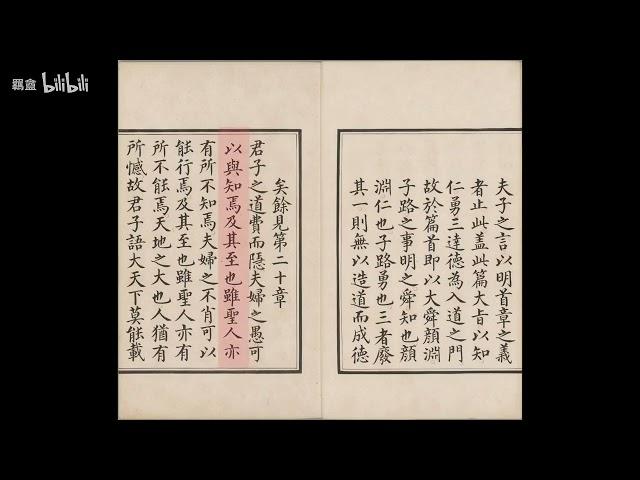 羈盒 bilibili
夫子之言以明首章之義
者止此盖此篇大㫖以知
仁勇三達德為入道之門
故於篇首即以大舜顔淵
子路之事明之舜知也顔
淵仁也子路勇也三者廢
其一則無以造道而成德
矣餘見第二十章
君子之道費而隠夫婦之愚可
以與知焉及其至也雖聖人亦
有所不知焉夫婦之不肖可以
能行焉及其至也雖聖人亦有
所不能焉天地之大也人猶有
所憾故君子語大天下莫能載